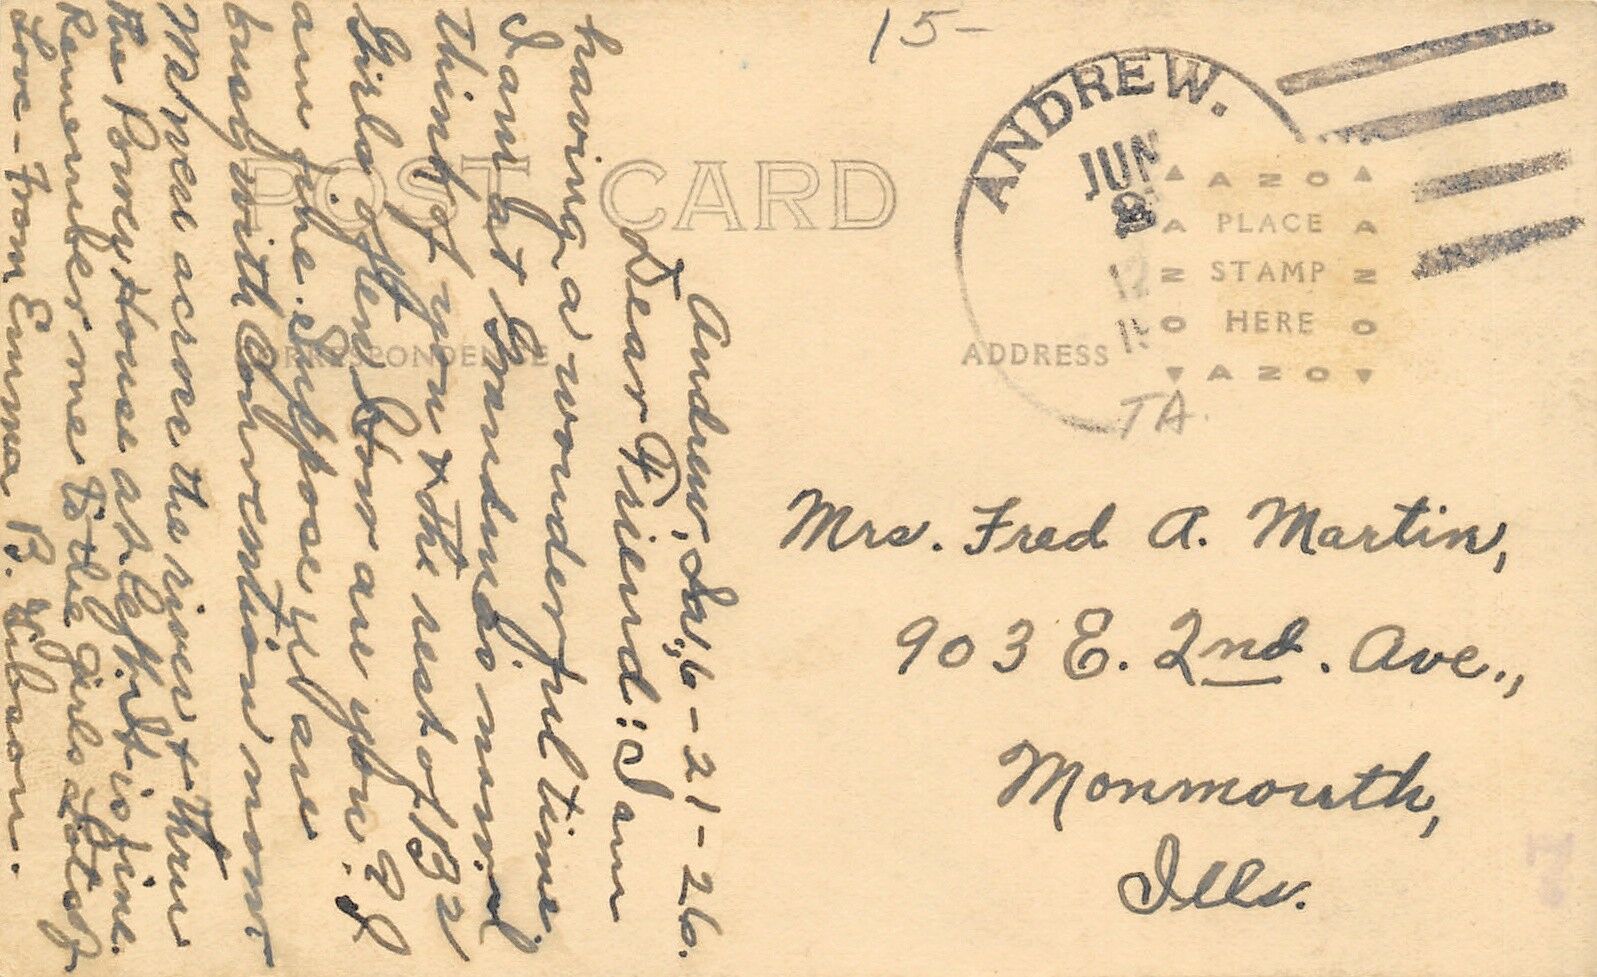 15-
ANDREW.
JUN
TA.
POST CARD
CORRESPONDENCE
ADDRESS
AZO
PLACE
STAMP
HERE
AZO
Andrew, Ia., 6-21-26.
Dear Friend: I am
having a wonderful time.
I am at Grandma's now. I
think of you & the rest of B2
Girls often. How are you? I
am fine. Suppose you are
busy with Convention now
We were across the river & thru
the Power House at it is fine.
Remember me to the Girls. Lots of
Love - From Emma B. Gibson.
Mrs. Fred A. Martin,
903 E. 2nd. Ave.,
Monmouth,
Ills.